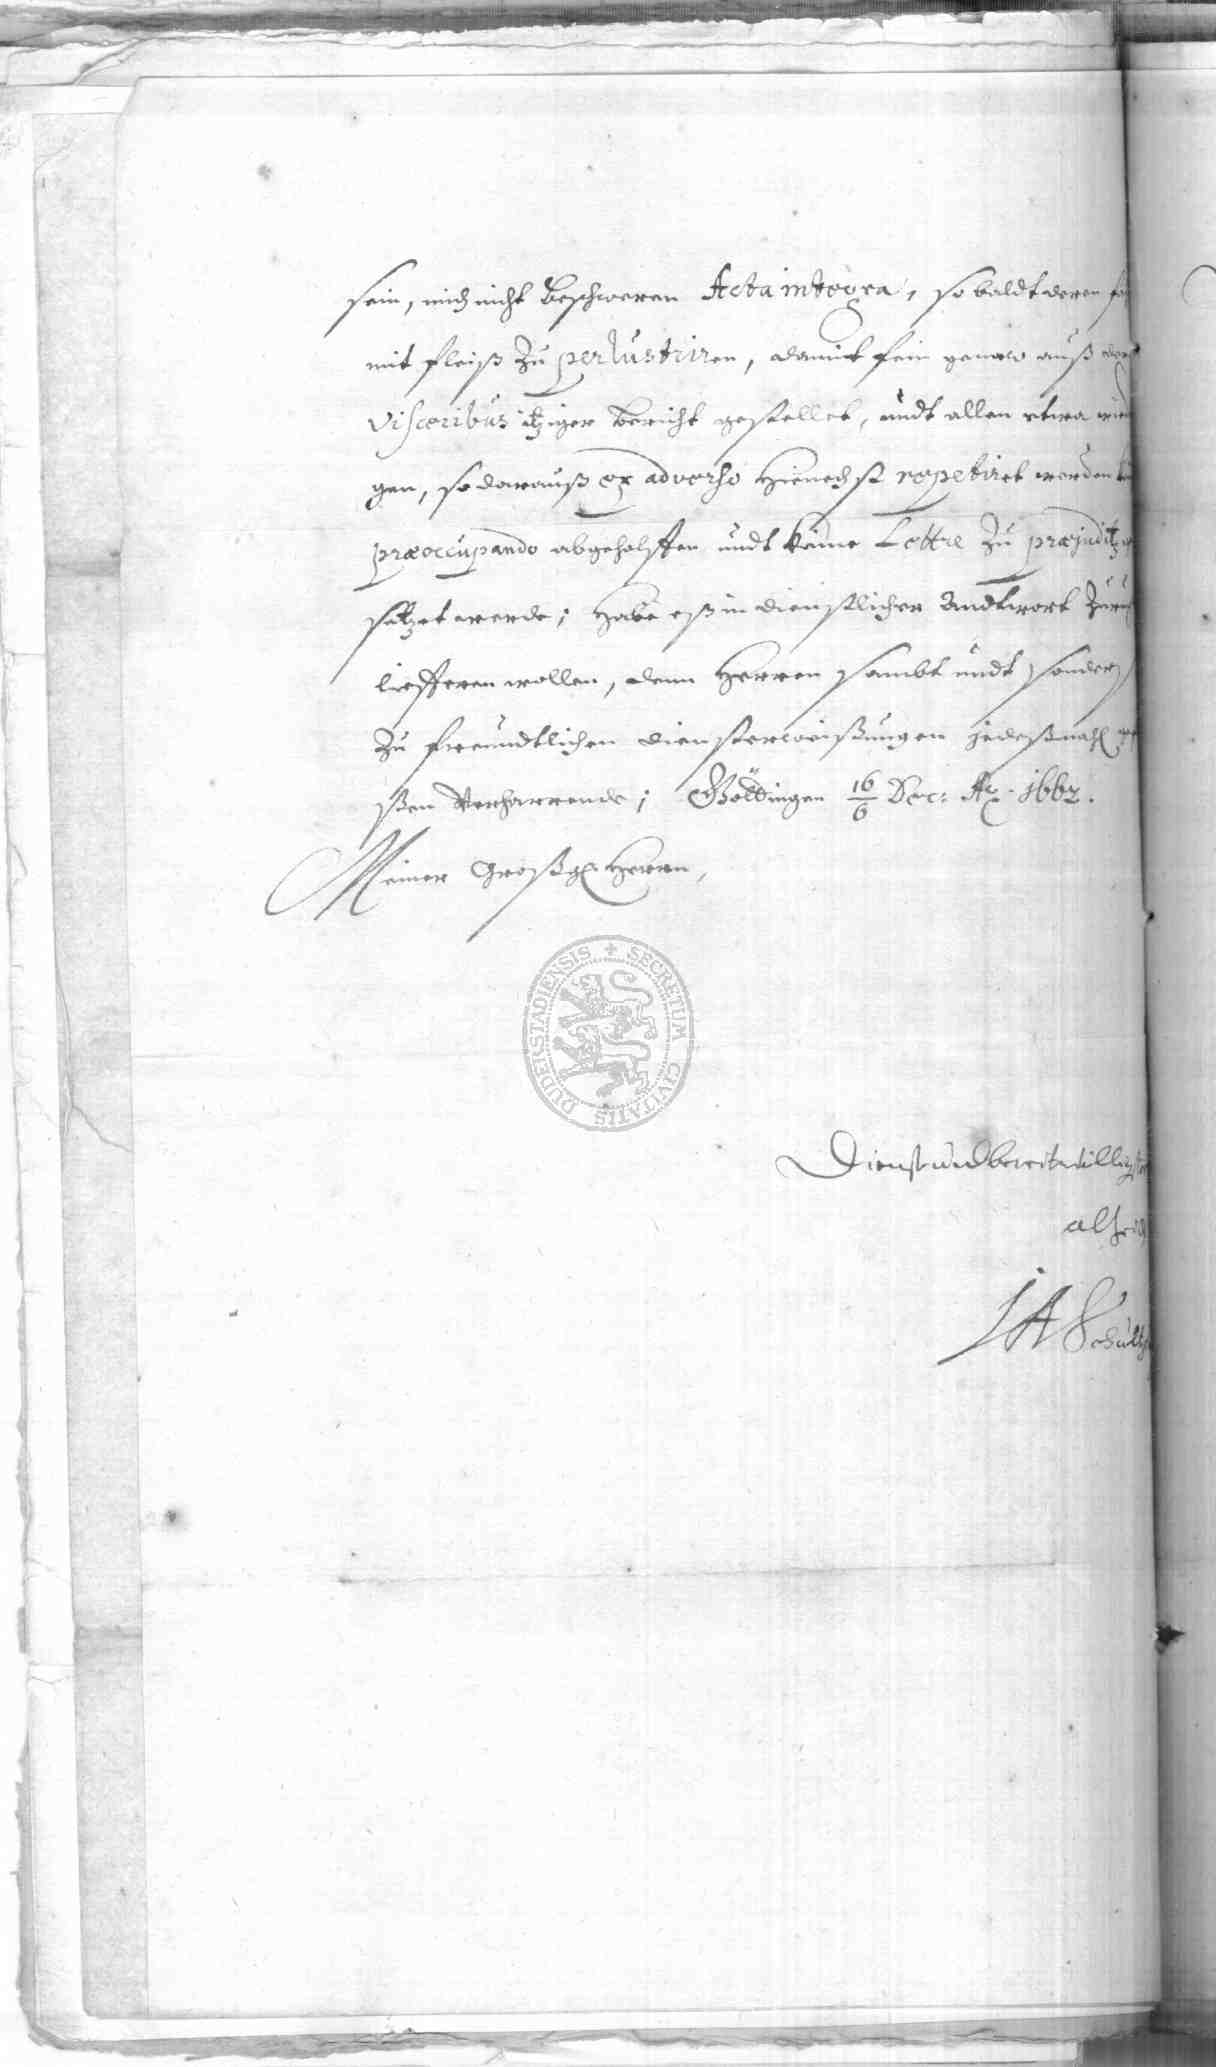 sein, mich nicht beschweren Acta integra, so baldt deren
mit fleiß zu perlustriren, damit fein genaw auß
visceribus itziger Bericht gestellet, undt allen etwa
gen, so darauß ex adverso hienechst repetiret werden
præoccupando abgeholffen undt keine Lettre zu præjuditz
setzet werde; habe eß in dienstlicher Andtwort zu
liefferen wollen, denn Herren sambt undt sonders
zu freundtlichen diensterweißungen jedeßmahl
ßen Verharrende; Göttingen 16/6 Dec: Ao. 1662.
Meiner Großg. Herrn,
SECRETUM CIVITATIS DUDERSTADIENSIS
Dienst und bereitwilligster
alhei
J A Schultz